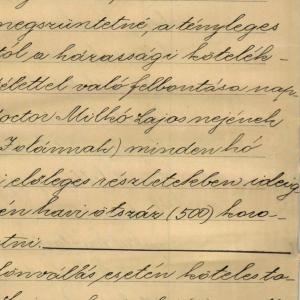 megszüntetné, a tényleges
tól a házassági kötelék-
télettel való felbontása nap-
doctor Milkó Lajos nejének
Jolánnak) minden hó
i előleges részletekben ideig
én havi ötszáz (500) koro-
tni.
lönválás esetén köteles ta-